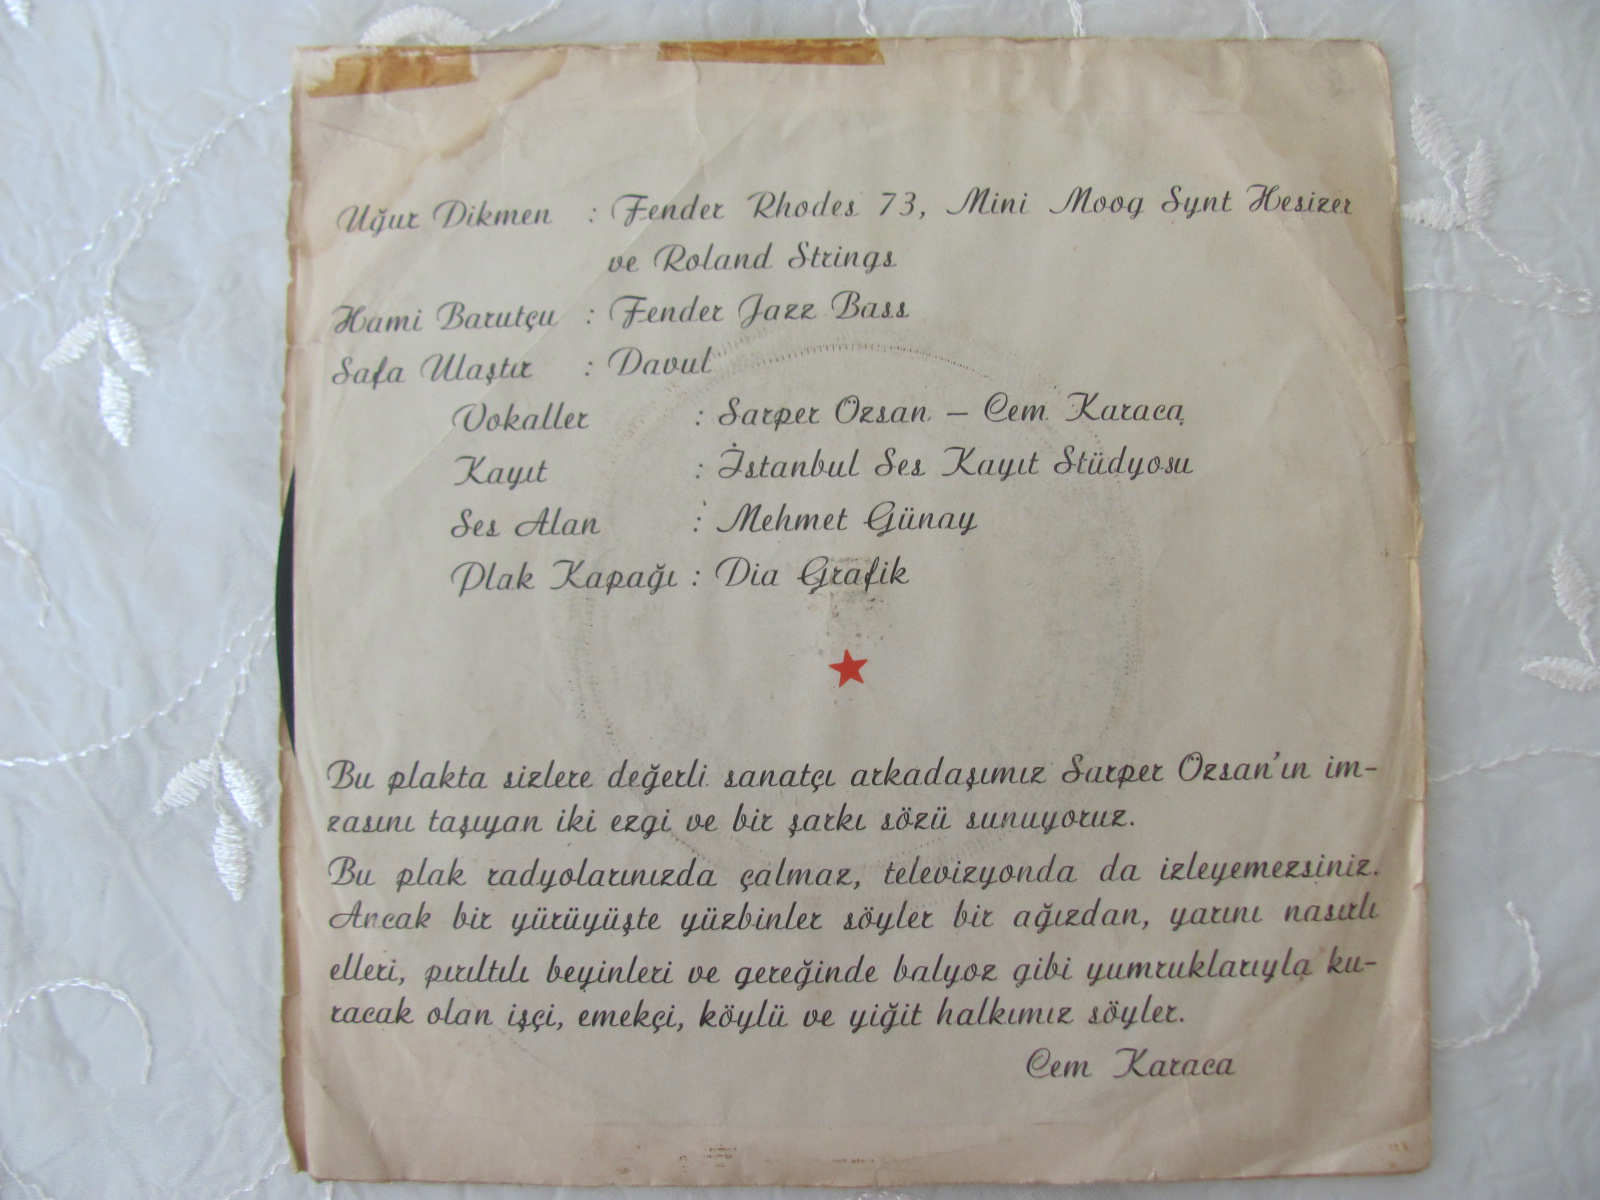 Uğur Dikmen : Fender Rhodes 73, Mini Moog Synt Hesizer
ve Roland Strings
Hami Barutçu : Fender Jazz Bass
Safa Ulaştır : Davul
Vokaller : Sarper Ozsan – Cem Karaca
Kayıt : İstanbul Ses Kayıt Stüdyosu
Ses Alan : Mehmet Günay
Plak Kapağı : Dia Grafik
Bu plakta sizlere değerli sanatçı arkadaşımız Sarper Ozsan'ın im-
zasını taşıyan iki ezgi ve bir şarkı sözü sunuyoruz.
Bu plak radyolarınızda çalmaz, televizyonda da izleyemezsiniz.
Ancak bir yürüyüşte yüzbinler söyler bir ağızdan, yarını nasırlı
elleri, pırıltılı beyinleri ve gereğinde balyoz gibi yumruklarıyla ku-
racak olan işçi, emekçi, köylü ve yiğit halkımız söyler.
Cem Karaca